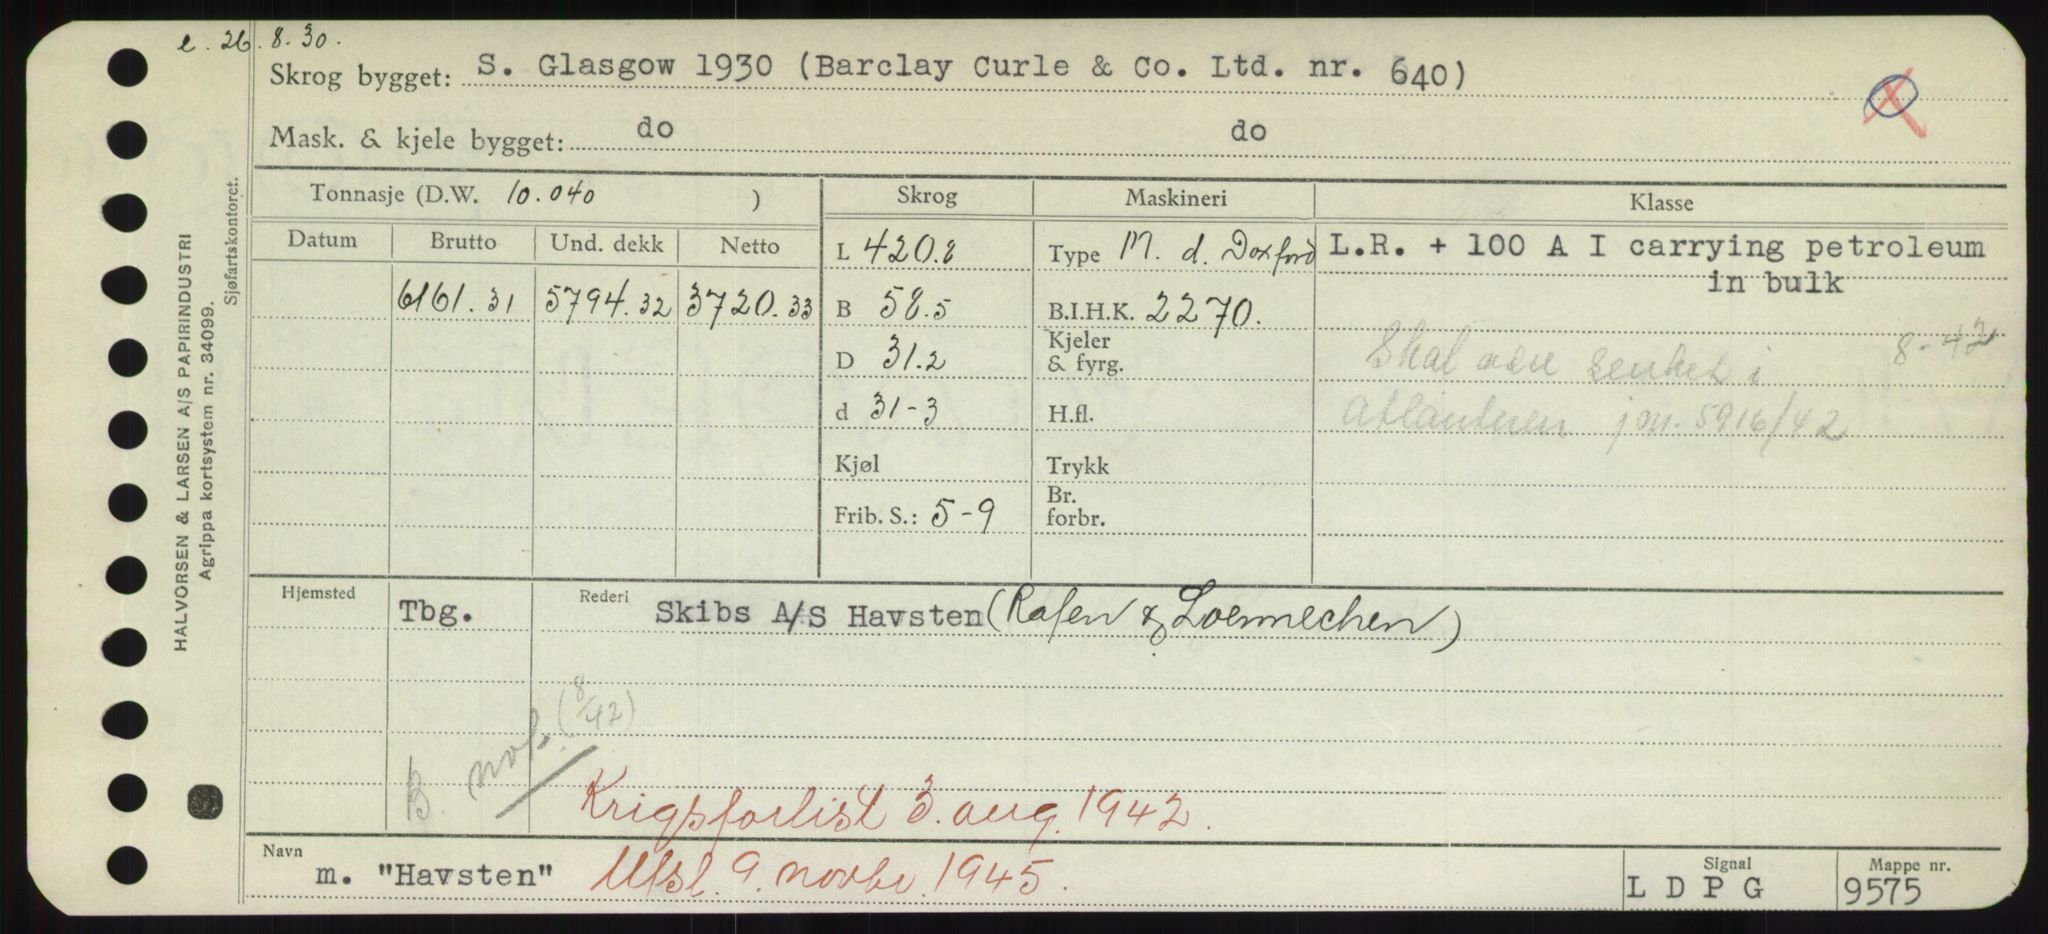 e. 26. 8. 30.
Skrog bygget: S. Glasgow 1930 (Barclay Curle & Co. Ltd. nr. 640)
Mask. & kjele bygget: do do
Tonnasje (D.W. 10.040 ) Skrog Maskineri Klasse
Datum Brutto Und. dekk Netto
L 420.8 Type M. d. Doxford L.R. + 100 A I carrying petroleum
in bulk
6161.31 5794.32 3720.33 B 58.5 B.I.H.K. 2270.
D 31.2 Kjeler & fyrg.
Skal være senket i 8-42
Atlanteren jnr. 5916/42
d 31-3 H.fl.
Kjøl Trykk
Frib. S.: 5-9 Br. forbr.
Hjemsted Tbg. Rederi Skibs A/S Havsten (Rafen & Loennechen)
B. not. (8/42)
Krigsforlist 3. aug. 1942.
Navn m. "Havsten" Utsl. 9. novbr. 1945.
Signal L D P G
Mappe nr. 9575
HALVORSEN & LARSEN A/S PAPIRINDUSTRI
Agrippa kortsystem nr. 34099.
Sjøfartskontoret.